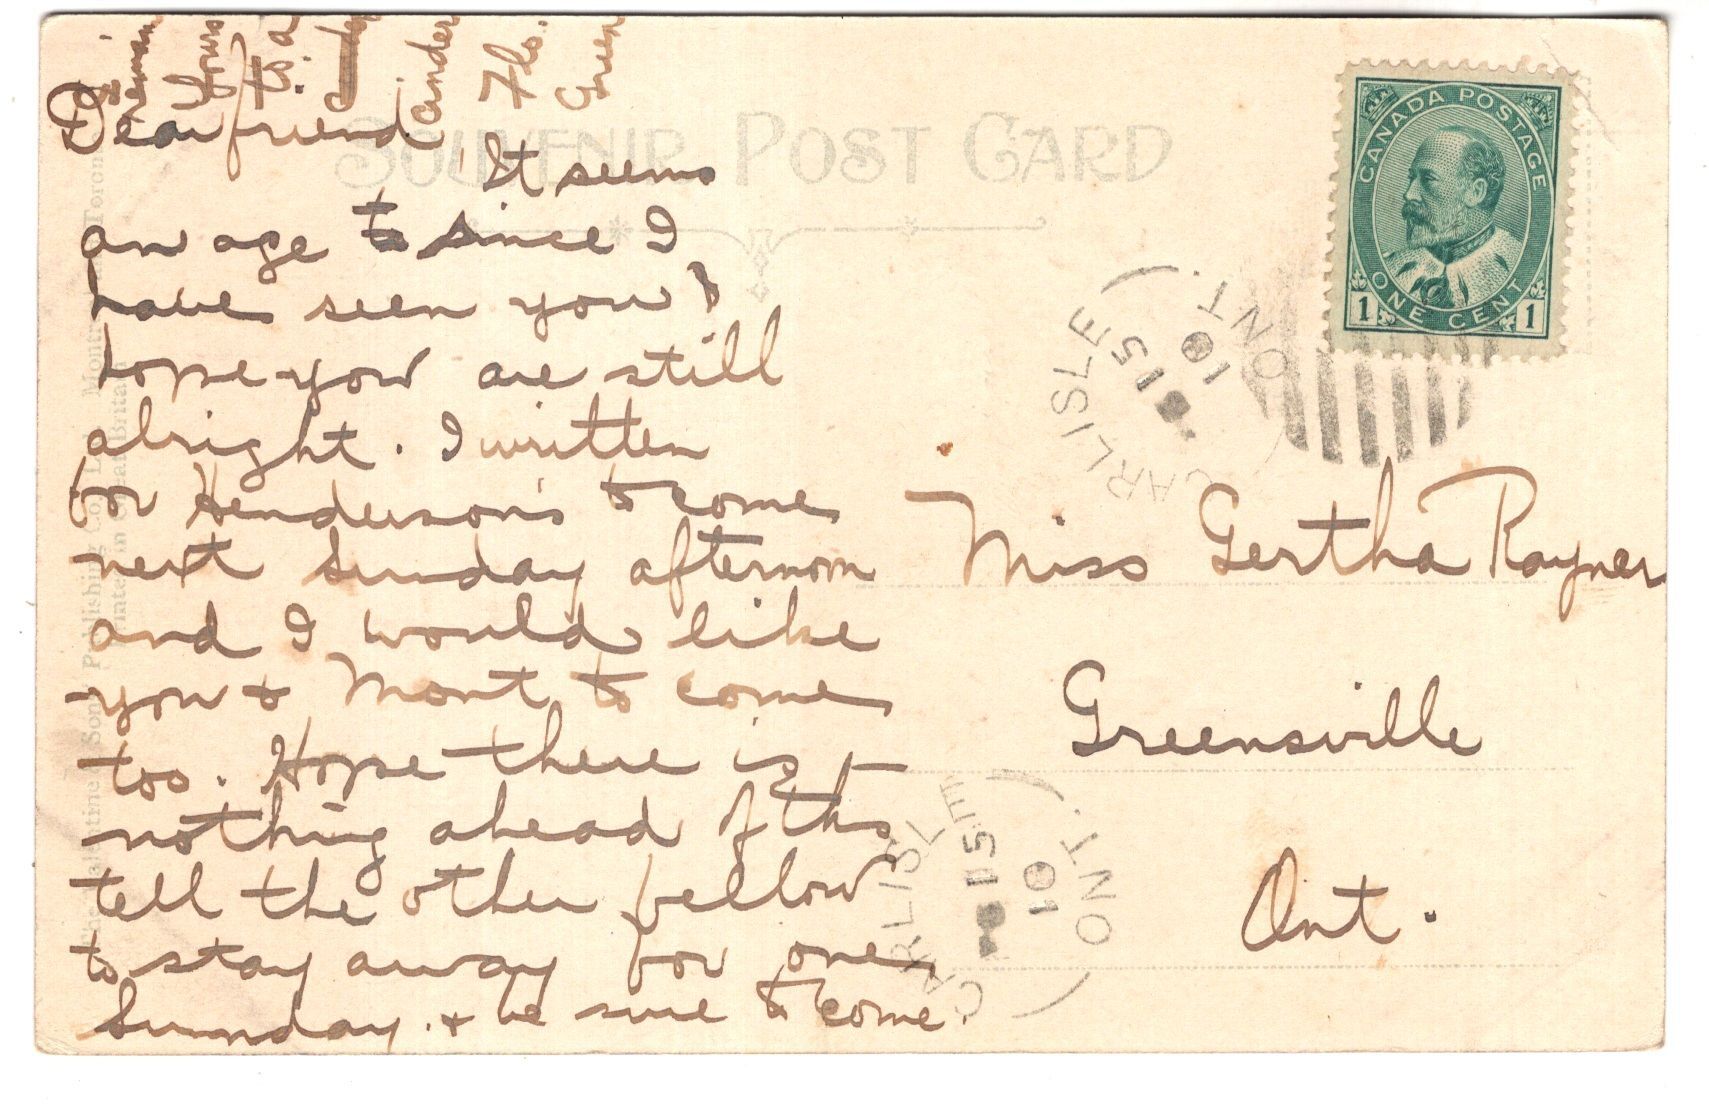 Dear friend
It seems
an age to since I
have seen you &
hope you are still
alright. I written
for Henderson's to come
next Sunday afternoon
and I would like
you & Mont to come
too. Hope there is
nothing ahead of ths
tell the other fellow
to stay away for one
Sunday. & be sure to come.
remain
Yours
to a
cinder
Flo.
Green
SOUVENIR POST CARD
CANADA POSTAGE
ONE CENT
1 1
CARLISLE
15
10
ONT.
Miss Gertha Rayner
Greensville
Ont.
CARLISLE
15
10
ONT.
The Valentine & Sons Publishing Co. Ltd. Montreal and Toronto
Printed in Great Britain